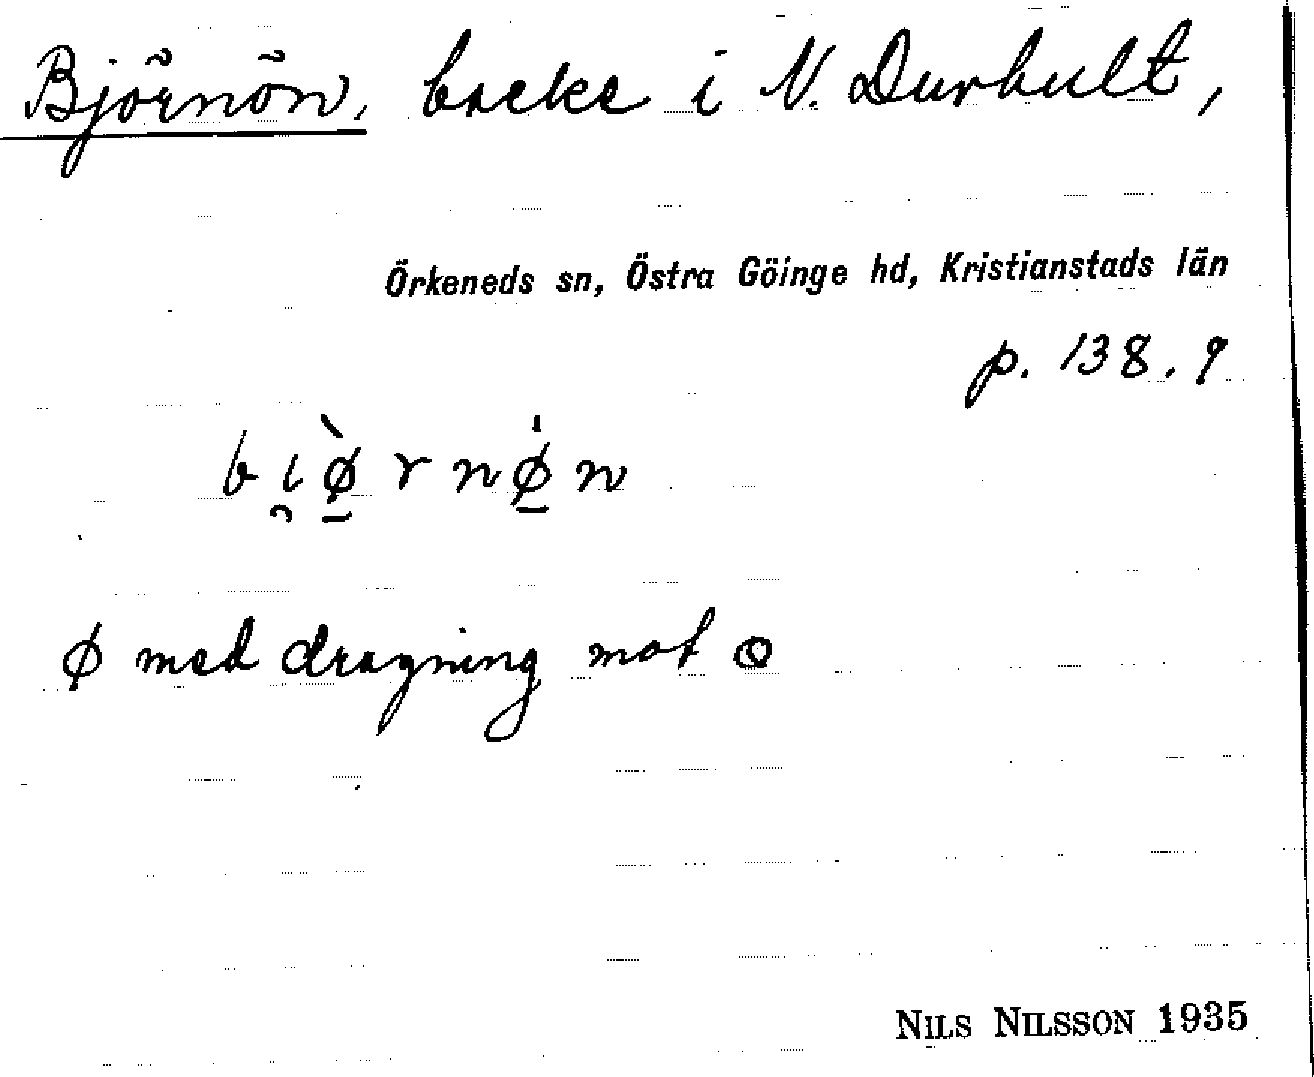 Björnön, backe i N. Duvhult,
Örkeneds sn, Östra Göinge hd, Kristianstads län
p. 138. 9
bi̯ø̠̀rnø̠̍n
ø med dragning mot o
NILS NILSSON 1935